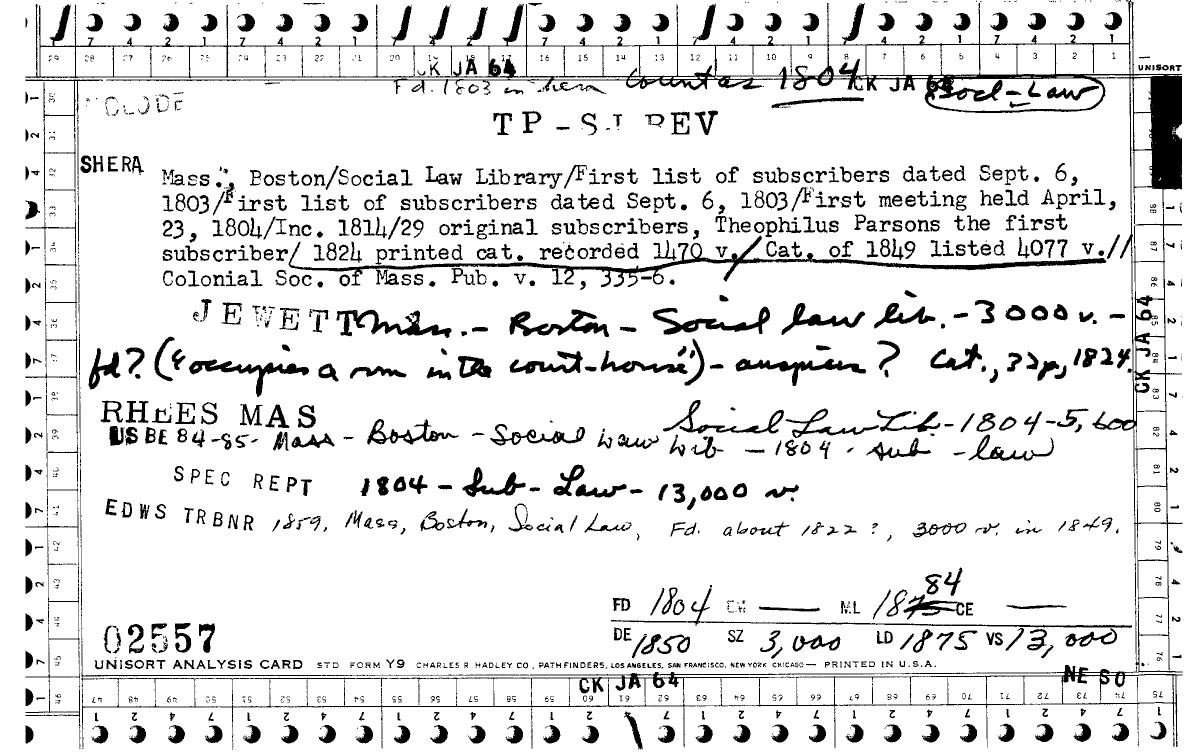 7 4 2 1 7 4 2 1 7 4 2 1 7 4 2 1 7 4 2 1 7 4 2 1 7 4 2 1
29 28 27 26 25 24 23 22 21 20 19 18 17 16 15 14 13 12 11 10 9 8 7 6 5 4 3 2 1
UNISORT
CK JA 64
Fd. 1803 in Shera Count as 1804 CK JA 64 Socl-Law
TP-SJ REV
SHERA
Mass., Boston/Social Law Library/First list of subscribers dated Sept. 6,
1803/First list of subscribers dated Sept. 6, 1803/First meeting held April,
23, 1804/Inc. 1814/29 original subscribers, Theophilus Parsons the first
subscriber/ 1824 printed cat. recorded 1470 v./ Cat. of 1849 listed 4077 v.//
Colonial Soc. of Mass. Pub. v. 12, 335-6.
JEWETT Mass. - Boston - Social law lib. - 3000 v. -
fd? ("occupies a rm in the court-house") - auspices? Cat., 32p, 1824.
CK JA 64
RHEES MAS Social Law Lib - 1804 - 5,600
US BE 84-85- Mass - Boston - Social Law Lib - 1804 - sub - law
SPEC REPT 1804 - Sub - Law - 13,000 v.
EDWS TRBNR 1859, Mass, Boston, Social Law, Fd. about 1822?, 3000 v. in 1849.
84
FD 1804 EM — ML 1875 CE —
DE 1850 SZ 3,000 LD 1875 VS 13,000
02557
UNISORT ANALYSIS CARD STD FORM Y9 CHARLES R HADLEY CO., PATHFINDERS, LOS ANGELES, SAN FRANCISCO, NEW YORK CHICAGO — PRINTED IN U.S.A.
CK JA 64
NE SO